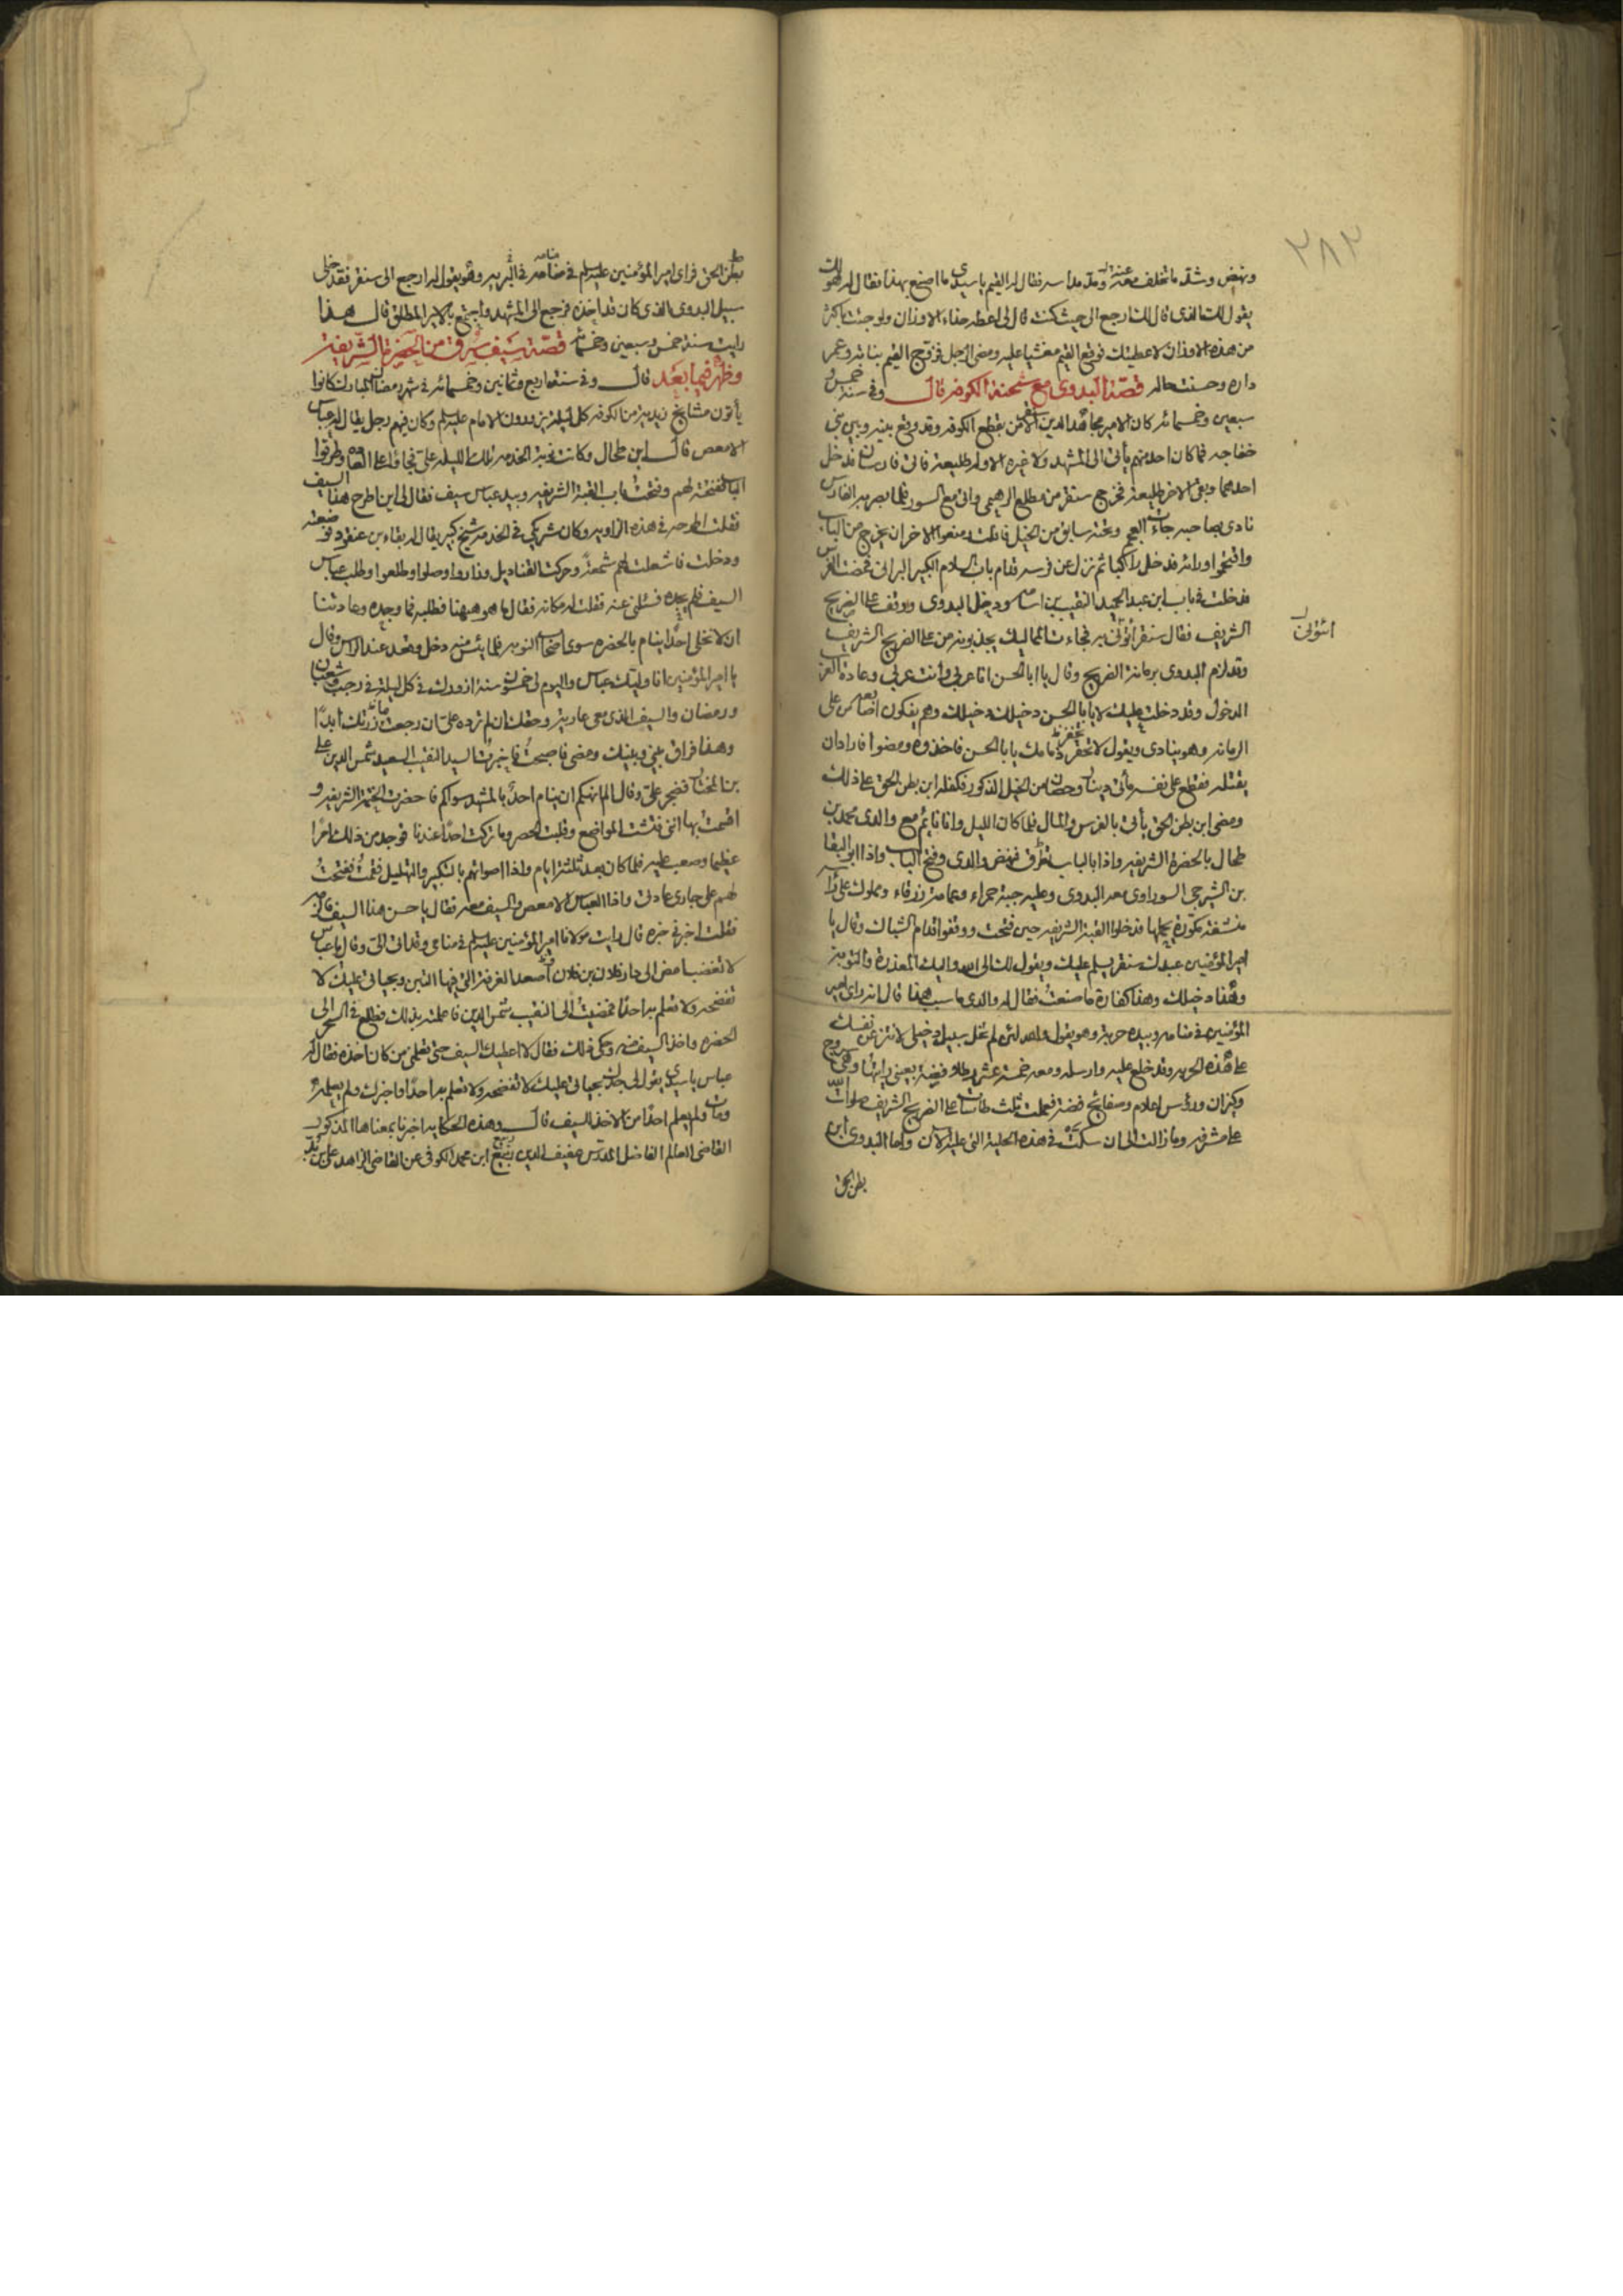 ٢٨٢
ونهض وشد ما تخلف معه عنده ومد مداسه فقال له القيم يا سيدي ما اصنع بهذا فقال له هو لك
يقول لك الذي قال لك ارجع الى حيث كنت قال لي اعطه حذاء الاوزان ولو جئت باكثر
من هذه الاوزان لاعطيتك فوقع القيم مغشيا عليه ومضى الرجل فزوج القيم بناته وعمر
داره وحسنت حاله قصة البدوي مع شحنة الكوفه قال وفي سنة خمس و
سبعين وخمسمائه كان الامير مجاهد الدين سنقر الآمن يقطع الكوفه وقد وقع بينه وبين بني
خفاجه فما كان احد منهم يأتي الى المشهد ولا غيره الا وله طليعة فاتى فارسان فدخل
احدهما وبقى الاخر طليعة فخرج سنقر من مطلع الرهيمي واتى مع السور فلما بصر به الفارس
نادى بصاحبه جاءت العجم وتحته سابق من الخيل فافلت ومنعوا الاخر ان يخرج من الباب
واقتحموا ورائه فدخل راكبا ثم نزل عن فرسه قدام باب السلام الكبير البراني فمضت الفرس
فدخلت في باب ابن عبد الحميد النقيب بن اسامه ودخل البدوي ووقف على الضريح
الشريف فقال سنقر أتوني به فجاءت المماليك يجذبونه من على الضريح الشريف
ائتوني
وقد لزم البدوي برمانة الضريح وقال يا ابا الحسن انا عربي وانت عربي وعادة العرب
الدخول وقد دخلت عليك لا يا ابا الحسن دخيلك دخيلك وهم يفكون اصابعه من على
الرمانه وهو ينادي ويقول لا تخفر ذمامك يا ابا الحسن فاخذوه ومضوا فارادان
يقتله فقطع على نفسه مأتي دينار وحصان من الخيل الذكور فكفله ابن بطن الحق على ذلك
ومضى ابن بطن الحق يأتي بالفرس والمال فلما كان الليل وانا نايم مع والدي محمد بن
طحال بالحضرة الشريفه واذا بالباب تطرق فنهض والدي وفتح الباب واذا ابو البقا
بن الشيرجي السوراوي معه البدوي وعليه جبة حمراء وعمامة زرقاء ومملوك على رأسه
منشفة مكورة يحملها فدخلوا القبة الشريفه حين فتحت ووقفوا قدام الشباك وقال يا
امير المؤمنين عبدك سنقر يسلم عليك ويقول لك الى الله واليك المعذرة والتوبة
وهذا دخيلك وهذا كفارة ما صنعت فقال له والدي ما سبب هذا قال انه رأى امير
المؤمنين في منامه وبيده حربة وهو يقول والله لئن لم تخل سبيل دخيلي لانتزعن نفسك
على هذه الحربه وقد خلع عليه وارسله ومعه خمسة عشر رطلا فضة بعيني رايتها وهي سروج
وكيزان ورؤس اعلام وصفايح فضة فعملت ثلث طاسات على الضريح الشريف صلوات الله
على مشرفه وما زالت الى ان سكت في هذه الحلية التي عليه الآن واما البدوي ابن
بطن الحق
بطن الحق فراى امير المؤمنين عليه السلم في منامه في البريه وهو يقول له ارجع الى سنقر فقد خلى
سبيل البدوي الذي كان قد اخذه فرجع الى المشهد واجتمع بالاسير المطلق قال هذا
رايت سنة خمس وسبعين وخمسمائه قصة سيف سرق من الحضرة الشريفة
وظهر فيما بعد قال وفي سنة اربع وثمانين وخمسمائه في شهر رمضان المبارك كانوا
يأتون مشايخ زيديه من الكوفه كل ليلة يزورون الامام عليه السلم وكان فيهم رجل يقال له عباس
الامعص قال ابن طحال وكانت نوبة الخدمه تلك الليله علي فجاؤا على العاده وطرقوا
الباب ففتحته لهم وفتحت باب القبة الشريفه وبيد عباس سيف فقال لي اين اطرح هذا السيف
فقلت اطرحه في هذه الزاويه وكان شريكي في الخدمه شيخ كبير يقال له بقاء بن عنقود فوضعه
ودخلت فاشعلت لهم شمعة وحركت القناديل وزاروا وصلوا وطلعوا وطلب عباس
السيف فلم يجده فسئلني عنه فقلت له مكانه فقال ما هو هيهنا فطلبه فما وجده وعادتنا
ان لا نخلي احدا ينام بالحضره سوى اصحاب النوبه فلما يئس منه دخل وقعد عند الراس وقال
يا امير المؤمنين انا وليك عباس واليوم لي خمسون سنة ازورك في كل ليلة في رجب وشعبان
ورمضان والسيف الذي معي عارية وحقك ان لم ترده علي ان رجعت ما زرتك ابدا
وهذا فراق بيني وبينك ومضى فاصبحت فاخبرت السيد النقيب السعيد شمس الدين علي
بن المختار فضجر علي وقال الم انهكم ان ينام احد بالمشهد سواكم فاحضرت الختمة الشريفه و
اقسمت بها انني فتشت المواضع وقلبت الحصر وما تركت احدا عندنا فوجد من ذلك امرا
عظيما وصعب عليه فلما كان بعد ثلثة ايام واذا اصواتهم بالتكبير والتهليل فقمت ففتحت
لهم على جاري عادتي واذا العباس الامعص والسيف معه فقال يا حسن هذا السيف فالزمه
فقلت اخبرني خبره قال رايت مولانا امير المؤمنين عليه السلم في منامي وقد اتى الي وقال يا عباس
لا تغضب امض الى دار فلان بن فلان اصعد الغرفة التي فيها التبن وبحياتي عليك لا
تفضحه ولا تعلم به احدا فمضيت الى النقيب شمس الدين فاعلمته بذلك فطلع في السحر الى
الحضره واخذ السيف منه وحكى له ذلك فقال لا اعطيك السيف حتى تعلمني من كان اخذه فقال له
عباس يا سيدي يقول لي جدك بحياتي عليك لا تفضحه ولا تعلم به احدا واخبرك ولم يعلمه
ومات ولم يعلم احدا من الاخذ السيف قال وهذه الحكايه اخبرنا بمعناها المذكور
القاضي العالم الفاضل المدرس عفيف الدين ربيع ابن محمد الكوفي عن القاضي الزاهد علي بن بدر